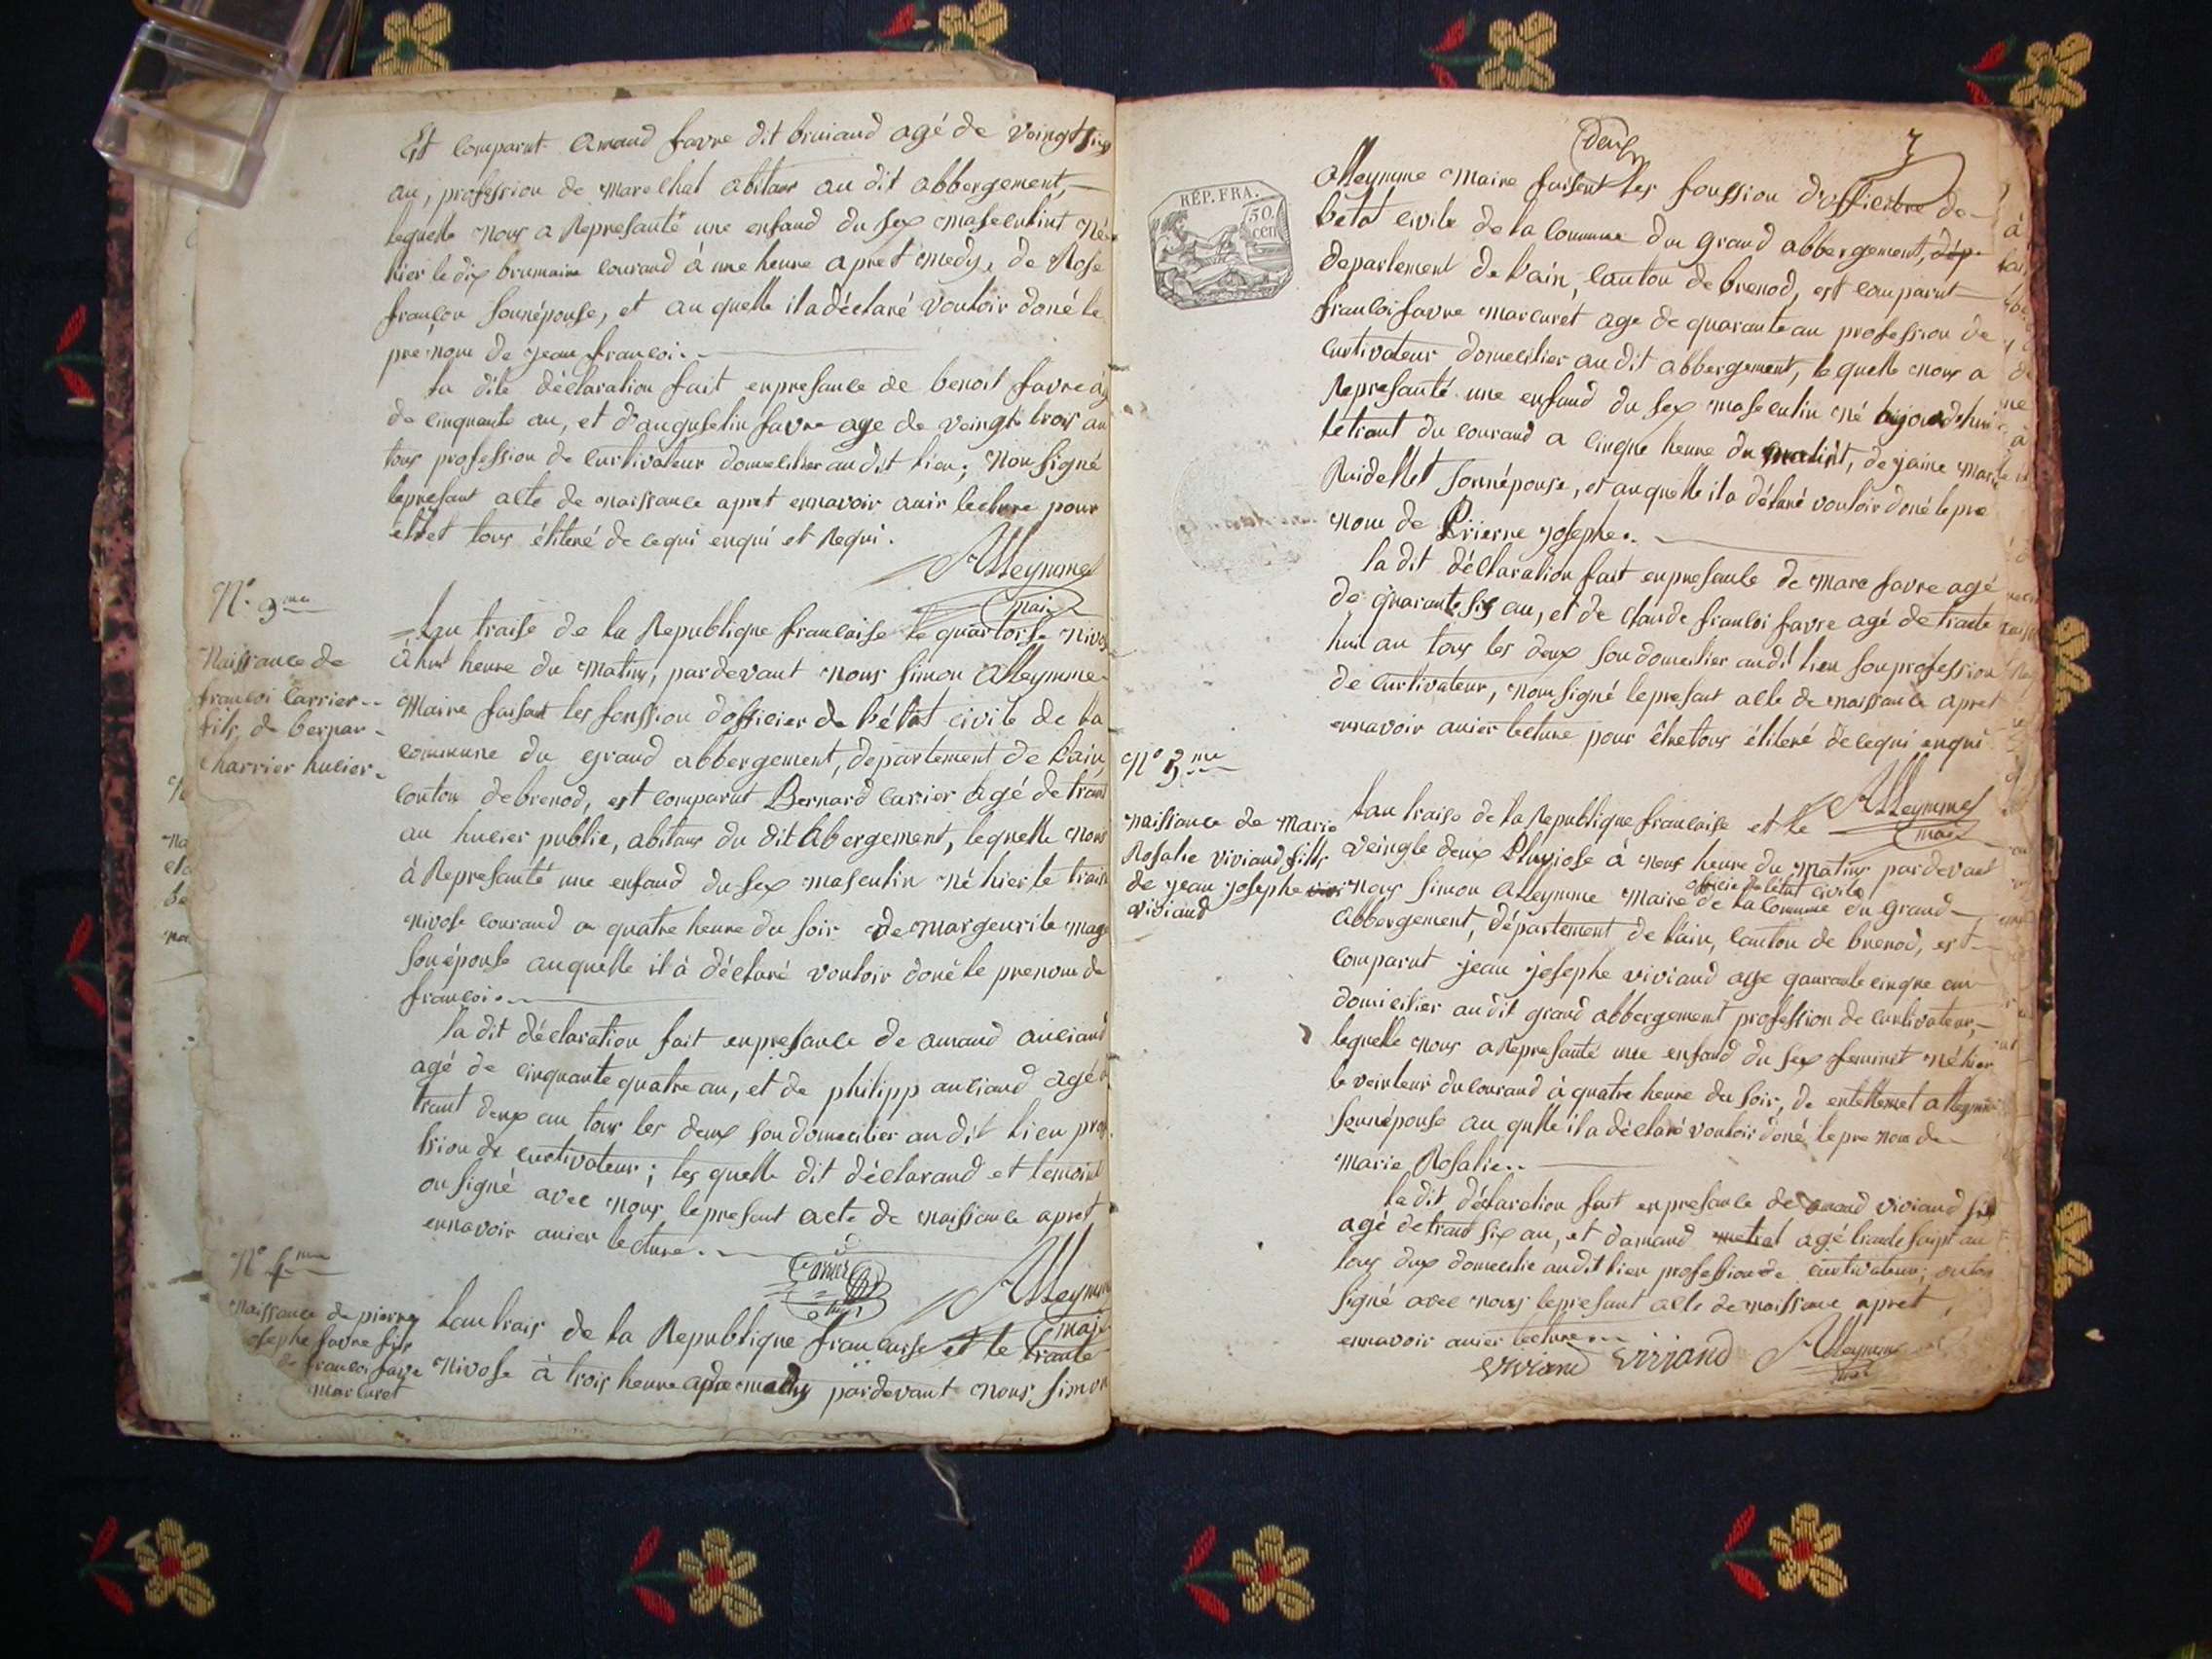 Est comparut amand favre dit bruiand agé de veingt six
an, profession de marelhal abitans au dit abbergement,
lequelle nous a Represanté une enfand du sex masculint né
hier le dix brumaire courand à une heure apret medy, de Rose
françon sonnépouse, et au quelle il a déclaré vouloir doné le
pre nom de jean francoi.
la dite déclaration fait enpresance de benoit favre âg
de cinquante an, et d'anguseltin favre age de veingt trois an
tous profession de curtivateur domecilier au dit lieu; non signé
lepresant acte de naissance apret ennavoir auir lecture pour
ettret tous éliteré de ce qui enqui et Requi.
Alleymme
maire
N.º 3me
Naissance de
francoi Carrier
fils de bernar
Charrier hucier
Lan traise de la Republique francaise le quartorse nivos
à huit heure du matins, pardevant nous simon Alleymme
Maire faisant les fonssion d'officier de l'état civile de la
commune du grand abbergement, departement de l'ain,
conton de brenod, est comparut Bernard carier agé de trant
an hucier publie, abitans du dit Abergement, lequelle nous
à Represanté une enfand du sex masculin né hier le traise
nivose courand a quatre heure du soir de marguerite mag
sonépouse auquelle il à déclaré vouloir doné le prenom de
francoi.
la dit déclaration fait enpresance de amand anciand
agé de cinquante quatre an, et de philipp anciand agé
trant deux an tous les deux son domecilier au dit lieu prof
ssion de curtivateur; les quelle dit déclarand et temoint
on signé avec nous lepresent acte de naissance apret
ennavoir auier lecture.
Carrier
Alleymme
maire
N.º 4me
Naissance de pierre
josephe favre fils
de francoi favre
marcuret
Lan trais de la Republique francaise et le trante
Nivose à trois heure apre medy pardevant nous simon
deux
3
RÉP. FRA.
50
cen
Alleymme maire faisent les fonssion d'officier de
l'etat civile de la commune du grand abbergement, dép
departement de l'ain, canton de brenod, est comparut
francoi favre marcuret age de quarante an profession de
curtivateur domecilier au dit abbergement, lequelle nous a
Represanté une enfand du sex masculin né aujourdhui
letrant du courand a cinque heure du matint, de jaine marie
Ruidellet sonnépouse, et auquelle il a déclaré vouloir doné le pre
nom de Prierre josephe.
la dit déclaration fait enpresance de marc favre agé
de quarante six an, et de Claude francoi favre agé de trante
huit an tous les deux son domecilier au dit lieu son profession
de curtivateur, nom signé lepresant acte de naissance apret
ennavoir auier lecture pour être tous éliteré de cequi enqui
Alleymme
maire
Nº 5me
naissance de marie
Rosalie viviand fille
de jean josephe
viviand
Lan traise de la Republique francaise et le
veingte deux Pluviose à neuf heure du matins pardevant
nous simon Alleymme maire officié de letat civile de la Commune du grand
Abbergement, département de l'ain, canton de brenod, est
comparut jean josephe viviand age quarante cinque an
domicilier audit grand abbergement profession de curtivateur,
lequelle nous a Represanté une enfand du sex feminit né hier
le veinteun du courand à quatre heure du soir, de Alleymme
sonnépouse au quelle il a déclaré vouloir doné le pre nom de
marie Rosalie.
la dit déclaration fait enpresance de amand viviand
agé de trant six an, et d'amand metral agé trante saipt an
tous dux domecilie audit lieu profession de curtivateur;
signé avec nous lepresant acte de naissance apret
ennavoir auier lecture
viviand viviand Alleymme
maire